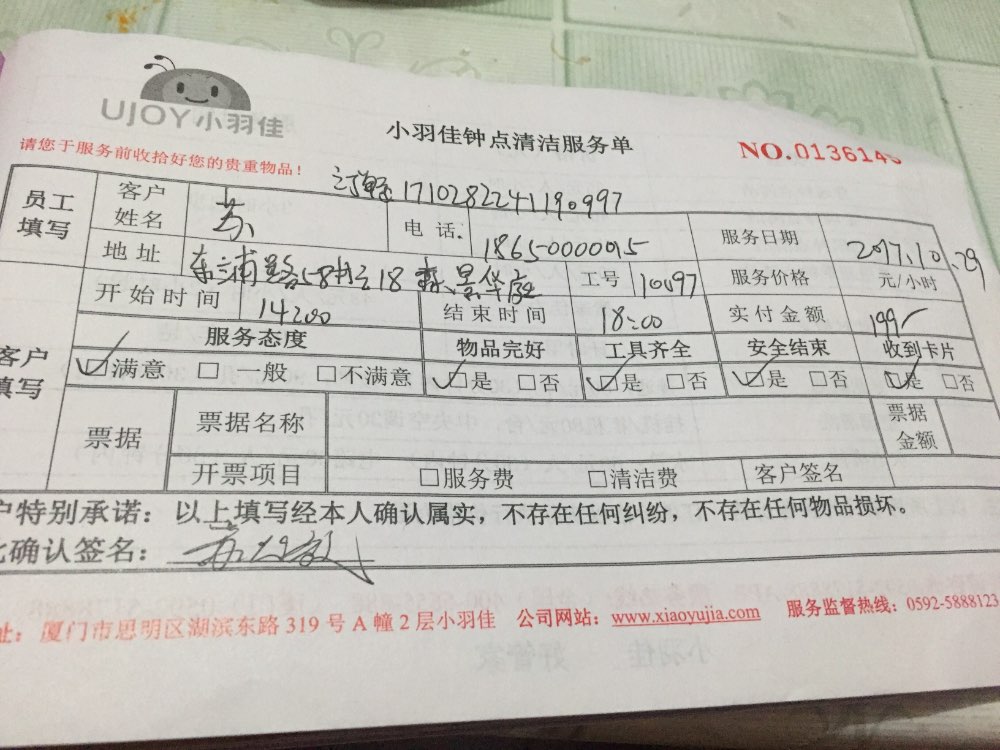 UJOY小羽佳
小羽佳钟点清洁服务单
NO.0136145
请您于服务前收拾好您的贵重物品！
1710282241190997
员工填写 客户姓名 苏 电话: 18650000015 服务日期 2017.10.29
地址 东浦路58号之18 森景华庭 工号 10097 服务价格 元/小时
开始时间 14:00 结束时间 18:00 实付金额 199
客户填写 服务态度 物品完好 工具齐全 安全结束 收到卡片
☑满意 □一般 □不满意 ☑是 □否 ☑是 □否 ☑是 □否 ☑是 □否
票据 票据名称 票据金额
开票项目 □服务费 □清洁费 客户签名
户特别承诺：以上填写经本人确认属实，不存在任何纠纷，不存在任何物品损坏。
此确认签名：
址：厦门市思明区湖滨东路319号A幢2层小羽佳 公司网站：www.xiaoyujia.com 服务监督热线：0592-5888123